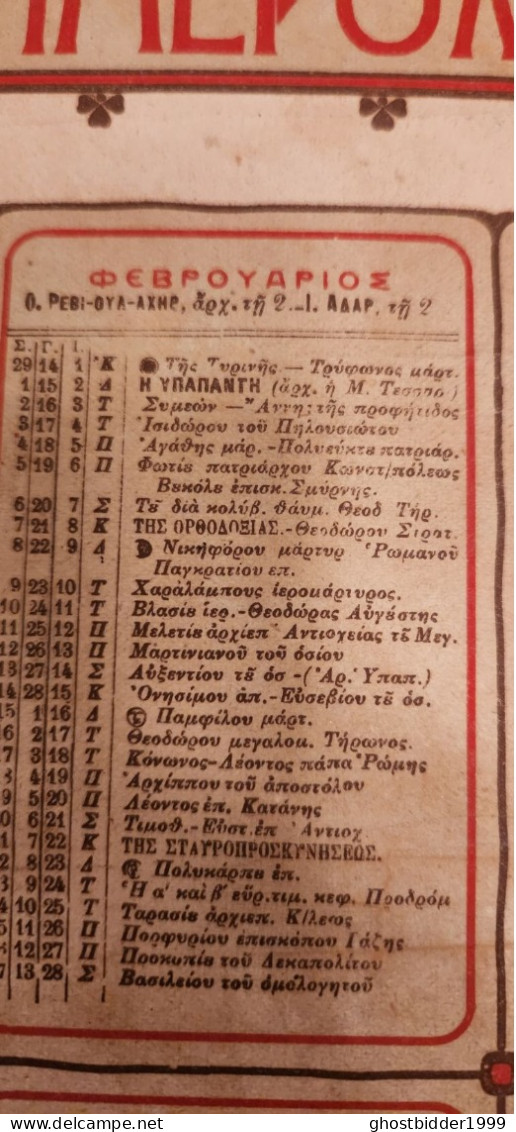 ΦΕΒΡΟΥΑΡΙΟΣ
Ο. ΡΕΒΙ-ΟΥΛ-ΑΧΗΡ, ἄρχ. τῇ 2.—Ι. ΑΔΑΡ, τῇ 2
Σ. Γ. Ι.
29 14 1 Κ Τῆς Τυρινῆς.— Τρύφωνος μάρτ.
1 15 2 Δ Η ΥΠΑΠΑΝΤΗ (ἄρχ. ἡ Μ. Τεσσαρ.)
2 16 3 Τ Συμεὼν —Ἄννης τῆς προφήτιδος
3 17 4 Τ Ἰσιδώρου τοῦ Πηλουσιώτου
4 18 5 Π Ἀγάθης μάρ.-Πολυεύκτȣ πατριάρ.
5 19 6 Π Φωτίȣ πατριάρχου Κωνστ/πόλεως
Βȣκόλȣ ἐπισκ. Σμύρνης.
6 20 7 Σ Τȣ͂ διὰ κολύβ. θαύμ. Θεοδ Τήρ.
7 21 8 Κ ΤΗΣ ΟΡΘΟΔΟΞΙΑΣ.-Θεοδώρου Στρατ.
8 22 9 Δ Νικηφόρου μάρτυρ Ῥωμανοῦ
Παγκρατίου επ.
9 23 10 Τ Χαραλάμπους ἱερομάρτυρος.
10 24 11 Τ Βλασίȣ ἱερ.-Θεοδώρας Αὐγούστης
11 25 12 Π Μελετίȣ ἀρχιεπ Ἀντιοχείας τȣ͂ Μεγ.
12 26 13 Π Μαρτινιανοῦ τοῦ ὁσίου
13 27 14 Σ Αὐξεντίου τȣ͂ ὁσ -(Ἀρ. Ὑπαπ.)
14 28 15 Κ Ὀνησίμου ἀπ.-Εὐσεβίου τȣ͂ ὁσ.
15 1 16 Δ Παμφίλου μάρτ.
6 2 17 Τ Θεοδώρου μεγαλομ. Τήρωνος.
7 3 18 Τ Κόνωνος-Λέοντος πάπα Ῥώμης
8 4 19 Π Ἀρχίππου τοῦ ἀποστόλου
9 5 20 Π Λέοντος ἐπ. Κατάνης
0 6 21 Σ Τιμοθ.-Εὐστ. ἐπ Ἀντιοχ
1 7 22 Κ ΤΗΣ ΣΤΑΥΡΟΠΡΟΣΚΥΝΗΣΕΩΣ.
2 8 23 Δ Πολυκάρπȣ ἐπ.
3 9 24 Τ Ἡ α' καὶ β' εὕρ. τιμ. κεφ. Προδρόμ
4 10 25 Τ Ταρασίȣ ἀρχιεπ. Κ/λεως
5 11 26 Π Πορφυρίου ἐπισκόπου Γάζης
6 12 27 Π Προκοπίȣ τοῦ Δεκαπολίτου
7 13 28 Σ Βασιλείου τοῦ ὁμολογητοῦ
www.delcampe.net
ghostbidder1999